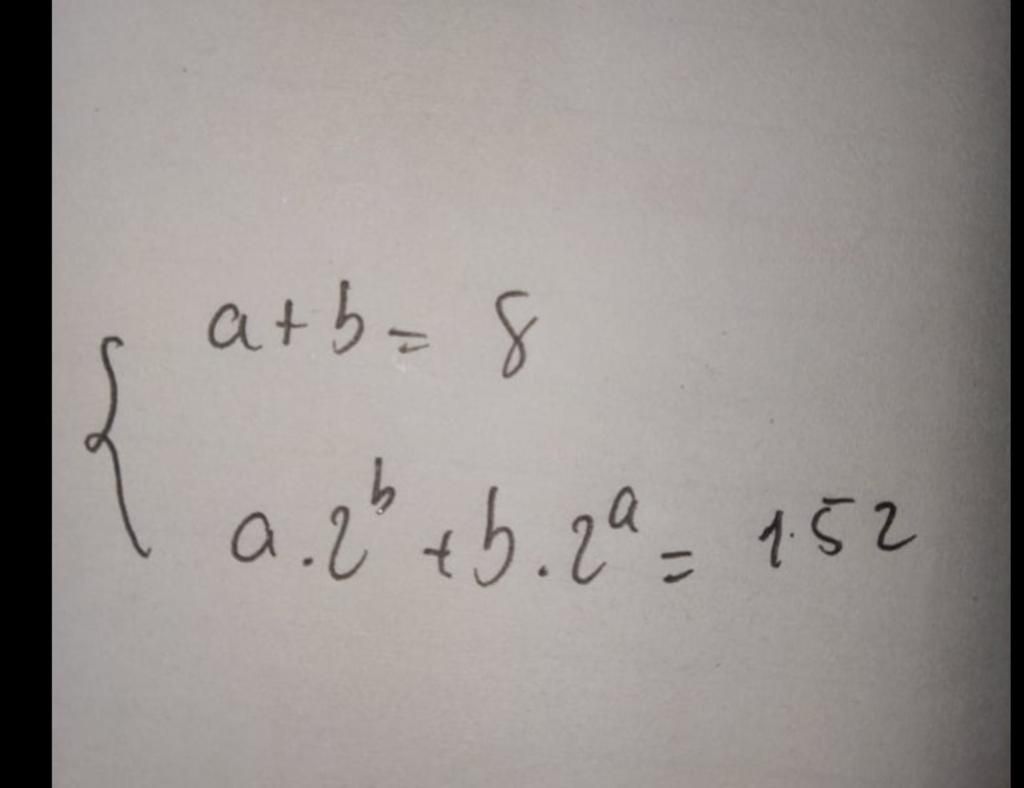 a+b= 8
a.2^b +b.2^a = 152